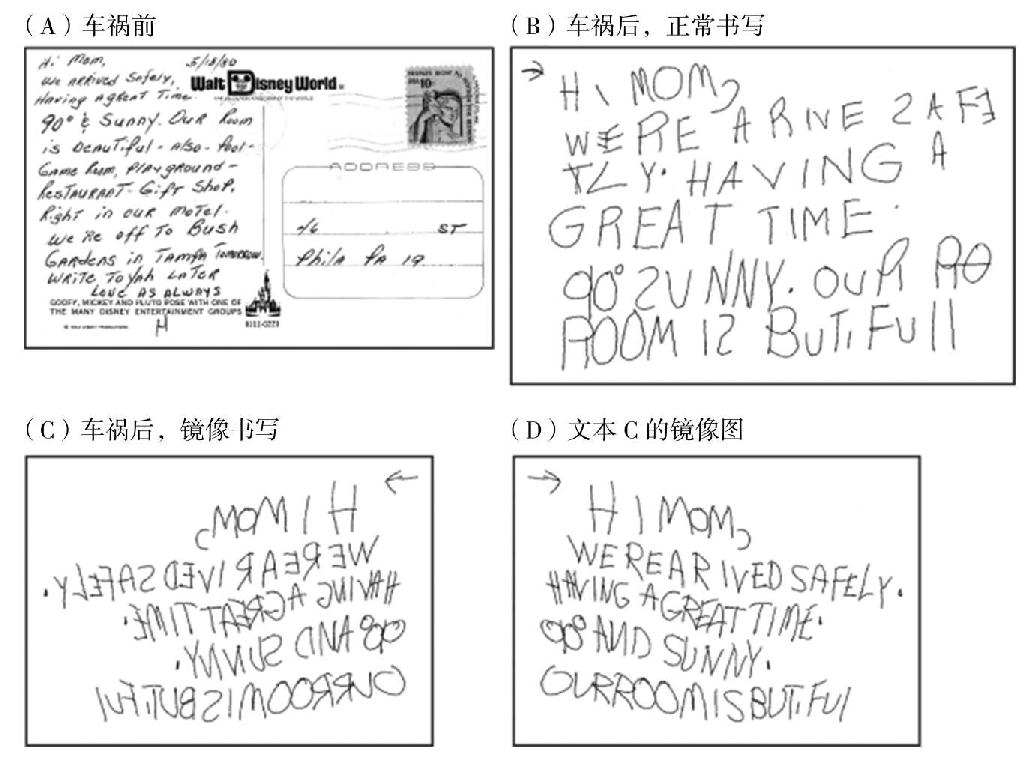 (A)车祸前
Hi Mom, 5/18/80
We arrived safely,
Having a great time.
90° & Sunny. Our room
is beautiful - also - pool -
Game Room, Playground -
Restaurant - Gift Shop,
Right in our motel.
We're off to Bush
Gardens in Tampa tomorrow.
Write to yah later
Love as always
Walt Disney World
10c
ADDRESS
ST
Phila Pa 19
GOOFY, MICKEY AND PLUTO POSE WITH ONE OF
THE MANY DISNEY ENTERTAINMENT GROUPS
© WALT DISNEY PRODUCTIONS
0111-0223
(B)车祸后,正常书写
→ HI MOM,
WERE ARIVE SAFE
TLY. HAVING A
GREAT TIME.
90° SUNNY. OUR RO
ROOM IS BUTIFUll
(C)车祸后,镜像书写
HI MOM, ←
WERE ARIVED SAFELY.
HAVING A GREAT TIME.
90° AND SUNNY.
OUR ROOM IS BUTIFUl
(D)文本C的镜像图
→ HI MOM,
WERE ARIVED SAFELY.
HAVING A GREAT TIME.
90° AND SUNNY.
OUR ROOM IS BUTIFUl